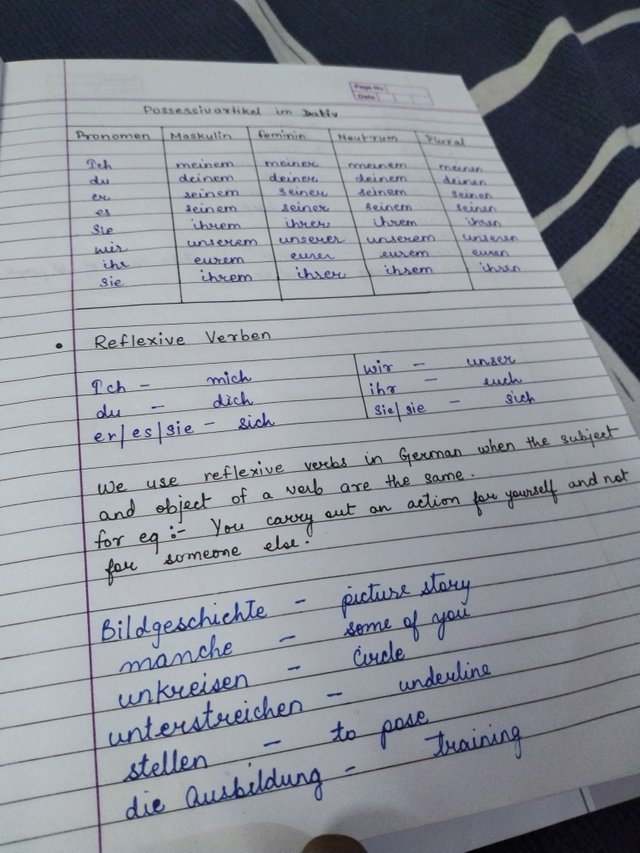 Page No.
Date
Possessivartikel im Dativ
Pronomen Maskulin feminin Neutrum Plural
Ich meinem meiner meinem meinen
du deinem deiner deinem deinen
er seinem seiner seinem seinen
es seinem seiner seinem seinen
Sie ihrem ihrer ihrem ihren
wir unserem unserer unserem unseren
ihr eurem eurer eurem euren
Sie ihrem ihrer ihrem ihren
• Reflexive Verben
Ich - mich wir - unser
du - dich ihr - euch
er/es/sie - sich Sie/sie - sich
We use reflexive verbs in German when the subject
and object of a verb are the same.
for eg :- You carry out an action for yourself and not
for someone else.
Bildgeschichte - picture story
manche - some of you
unkreisen - circle
unterstreichen - underline
stellen - to pose
die Ausbildung - training